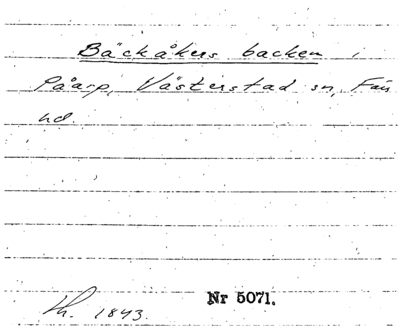 Bäckåkers backen i
Påarp, Västerstad sn, Färs
hd.
Kh. 1843.
Nr 5071.